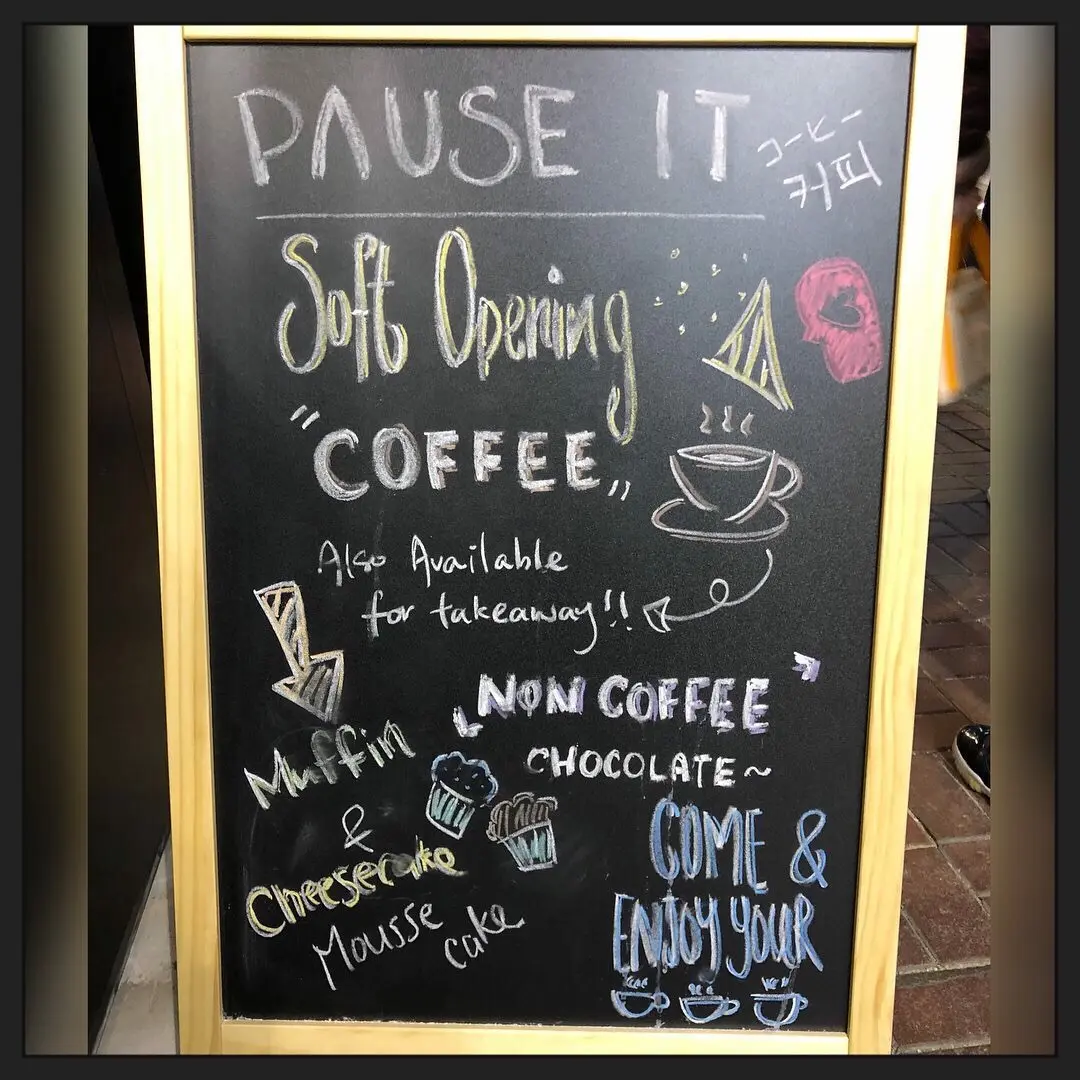 PAUSE IT
コーヒー
커피
Soft Opening
"COFFEE"
Also Available
for takeaway!!
NON COFFEE
CHOCOLATE~
Muffin
&
Cheesecake
Mousse
cake
COME &
ENJOY YOUR